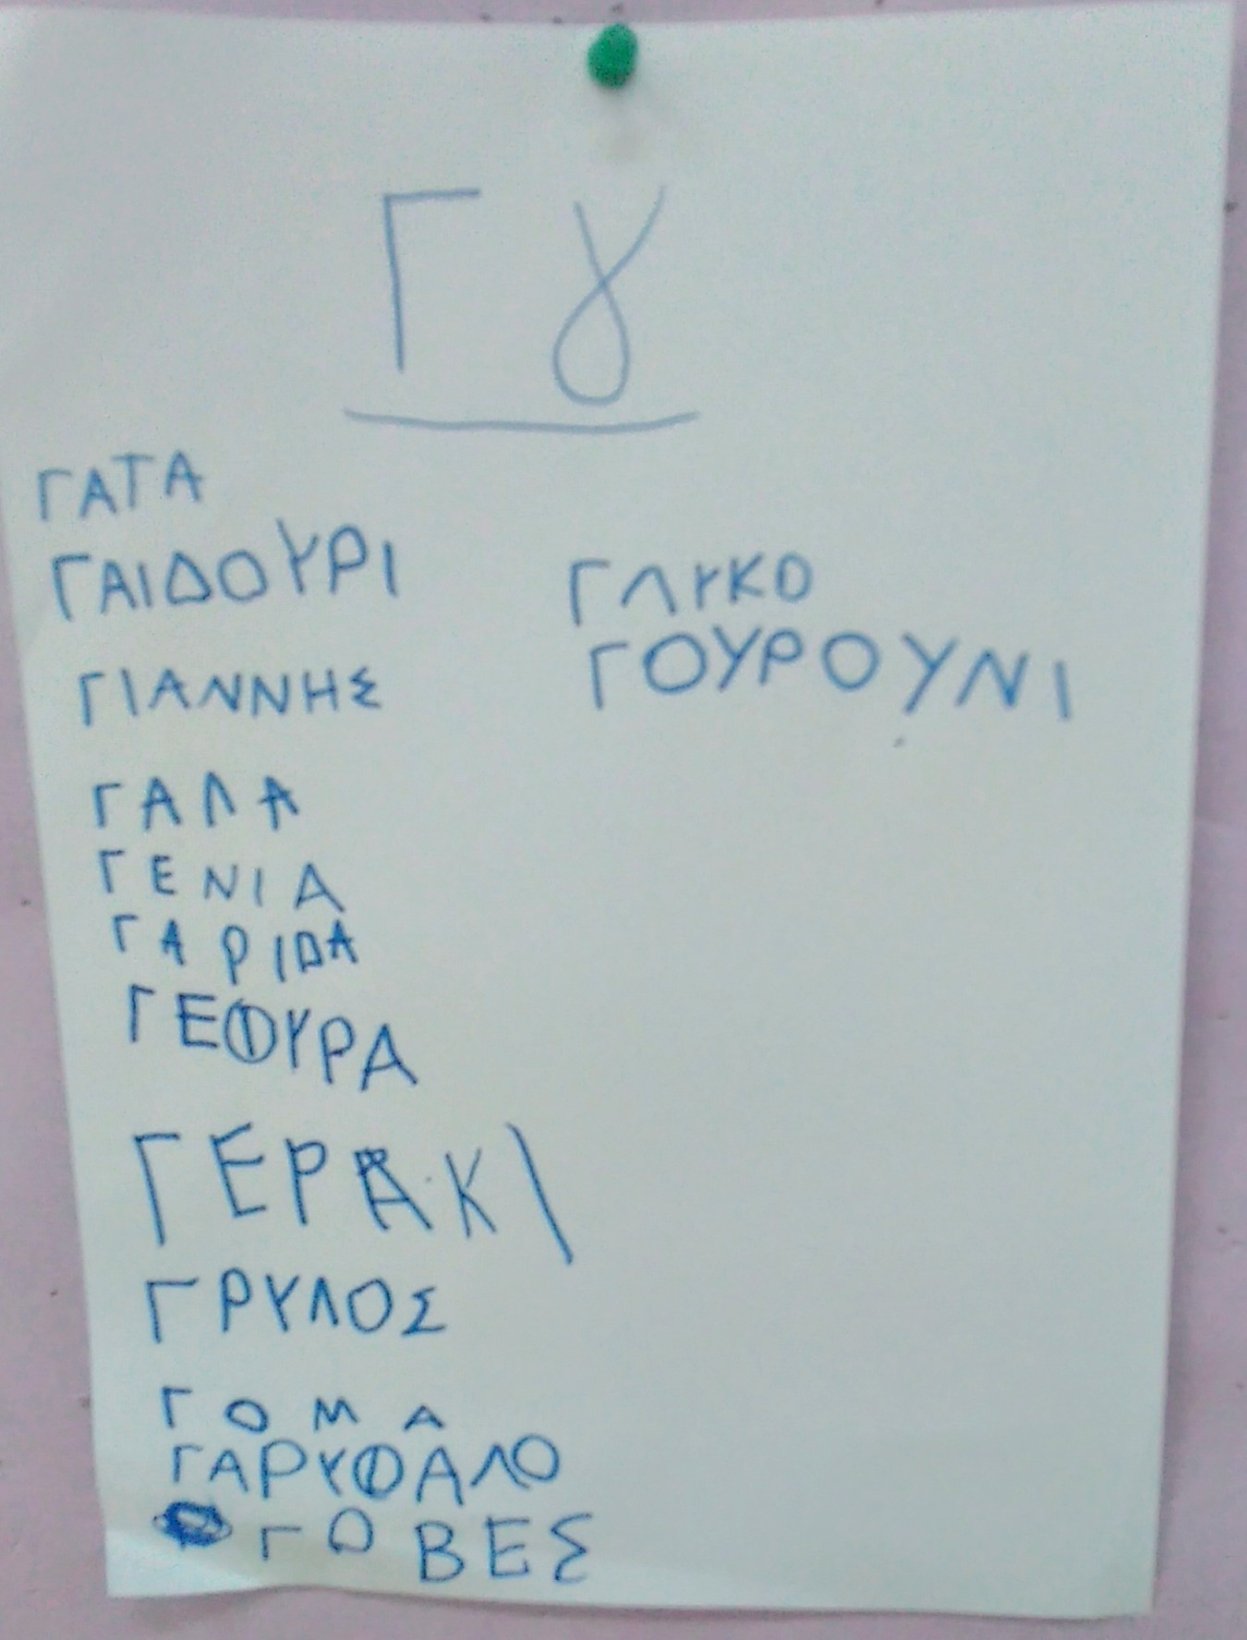 Γ γ
ΓΑΤΑ
ΓΑΙΔΟΥΡΙ
ΓΙΑΝΝΗΣ
ΓΑΛΑ
ΓΕΝΙΑ
ΓΑΡΙΔΑ
ΓΕΦΥΡΑ
ΓΕΡΑΚΙ
ΓΡΥΛΟΣ
ΓΟΜΑ
ΓΑΡΥΦΑΛΟ
ΓΟΒΕΣ
ΓΛΥΚΟ
ΓΟΥΡΟΥΝΙ